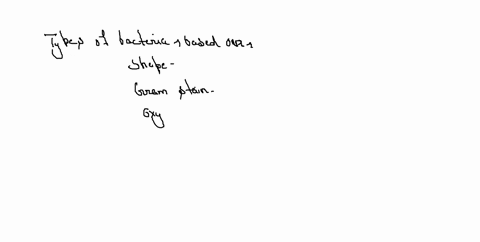 Types of bacteria based over
Shape-
Gram stain.
Oxy